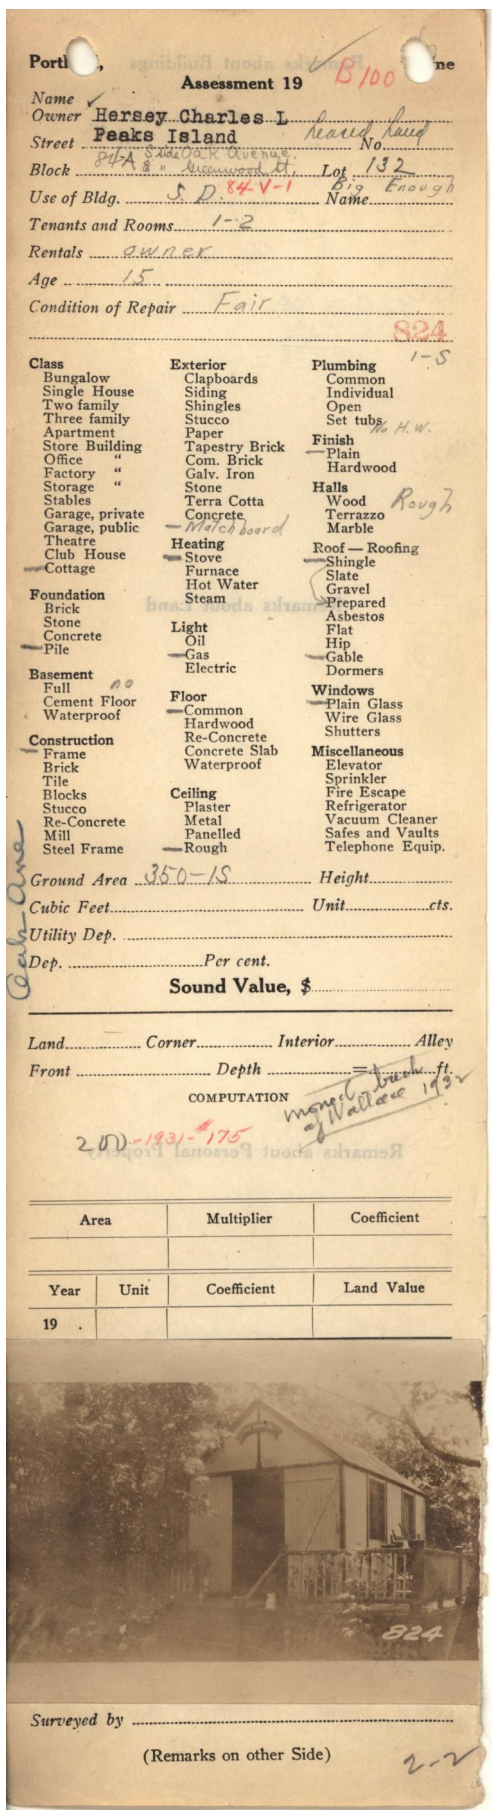 Portl , ne
B 100
Assessment 19
Name ✓
Owner Hersey Charles L
Street Peaks Island Leased Land No.
Block 84-A S side Oak Avenue. Greenwood St. Lot 132
Use of Bldg. S. D. 84-V-1 Name Big Enough
Tenants and Rooms 1-2
Rentals owner
Age 15
Condition of Repair Fair
824
1-S
Class
Bungalow
Single House
Two family
Three family
Apartment
Store Building
Office "
Factory "
Storage "
Stables
Garage, private
Garage, public
Theatre
Club House
Cottage
Foundation
Brick
Stone
Concrete
Pile
Basement
Full no
Cement Floor
Waterproof
Construction
Frame
Brick
Tile
Blocks
Stucco
Re-Concrete
Mill
Steel Frame
Exterior
Clapboards
Siding
Shingles
Stucco
Paper
Tapestry Brick
Com. Brick
Galv. Iron
Stone
Terra Cotta
Concrete
Matchboard
Heating
Stove
Furnace
Hot Water
Steam
Light
Oil
Gas
Electric
Floor
Common
Hardwood
Re-Concrete
Concrete Slab
Waterproof
Ceiling
Plaster
Metal
Panelled
Rough
Plumbing
Common
Individual
Open
Set tubs
No H.W.
Finish
Plain
Hardwood
Halls
Wood Rough
Terrazzo
Marble
Roof — Roofing
Shingle
Slate
Gravel
Prepared
Asbestos
Flat
Hip
Gable
Dormers
Windows
Plain Glass
Wire Glass
Shutters
Miscellaneous
Elevator
Sprinkler
Fire Escape
Refrigerator
Vacuum Cleaner
Safes and Vaults
Telephone Equip.
Oak Ave
Ground Area 350-1S Height
Cubic Feet Unit cts.
Utility Dep.
Dep. Per cent.
Sound Value, $
Land Corner Interior Alley
Front Depth = ft.
COMPUTATION
moved back
of Wallace 1932
200-1931-$175
Area Multiplier Coefficient
Year Unit Coefficient Land Value
19 .
824
Surveyed by
(Remarks on other Side)
2-2